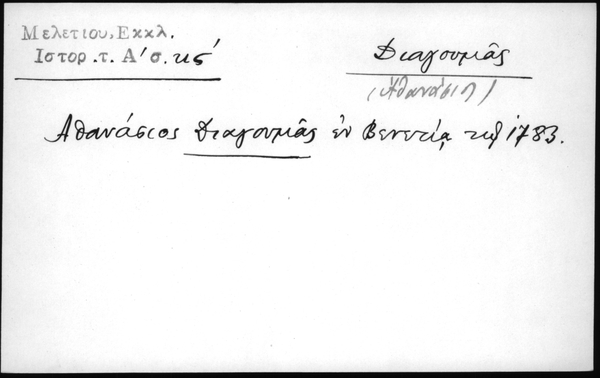 Μελετίου, Εκκλ.
Ιστορ. τ. Α' σ. κς'
Διαγουμᾶς
(Ἀθανάσιος)
Ἀθανάσιος Διαγουμᾶς ἐν Βενετίᾳ τῷ 1783.